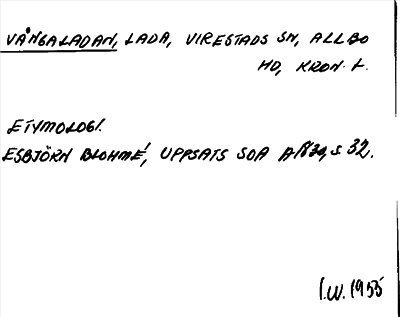 VÅNGALADAN, LADA, VIRESTADS SN, ALLBO
HD, KRON. L.
ETYMOLOGI.
ESBJÖRN BLOHMÉ, UPPSATS SOA S 32.
I.W. 1955